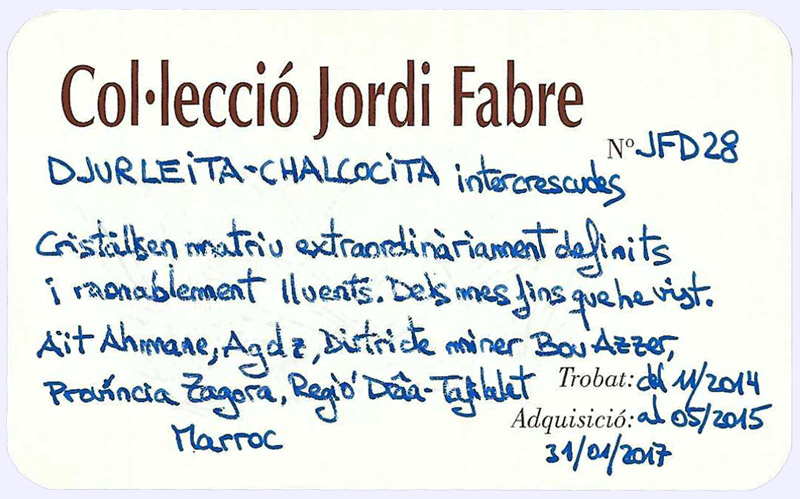 Col·lecció Jordi Fabre
Nº JFD28
DJURLEITA-CHALCOCITA intercrescudes
Cristalls en matriu extraordinàriament definits
i raonablement lluents. Dels mes fins que he vist.
Aït Ahmane, Agdz, Districte miner Bou Azzer,
Província Zagora, Regió Drâa-Tafilalet
Marroc
Trobat: del 11/2014
al 05/2015
Adquisició: 31/01/2017